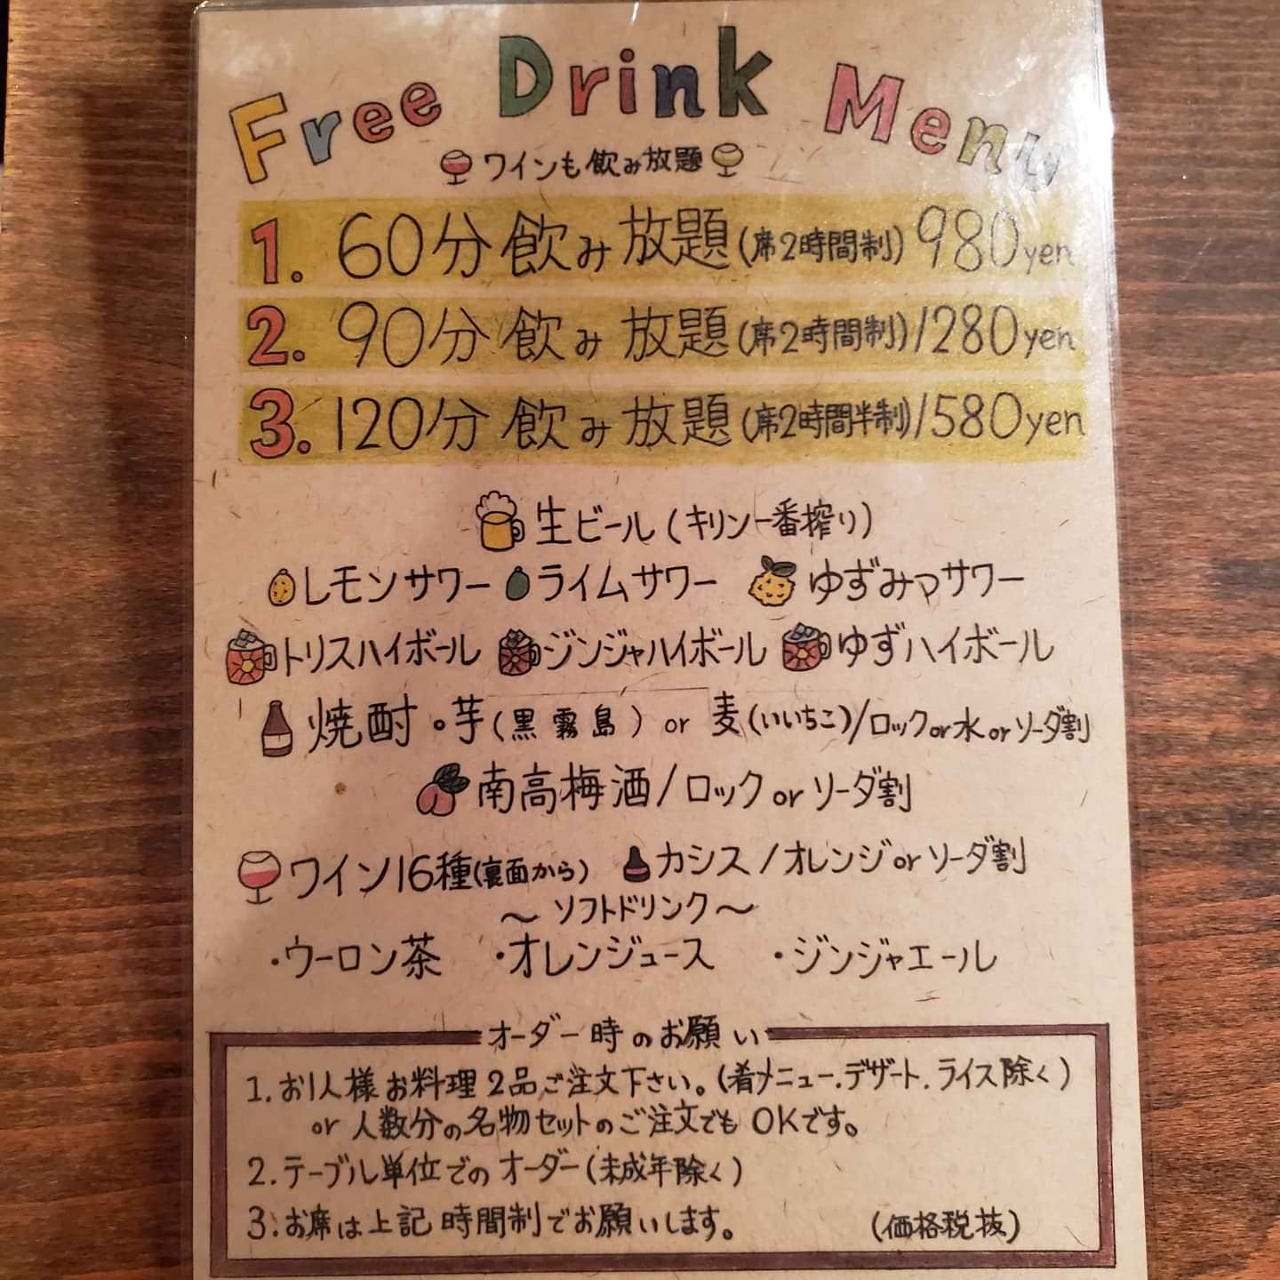 Free Drink Menu
ワインも飲み放題
1. 60分飲み放題(席2時間制) 980yen
2. 90分飲み放題(席2時間制) 1280yen
3. 120分飲み放題(席2時間半制) 1580yen
生ビール(キリン一番搾り)
レモンサワー ライムサワー ゆずみつサワー
トリスハイボール ジンジャハイボール ゆずハイボール
焼酎・芋(黒霧島) or 麦(いいちこ)/ロックor水orソーダ割
南高梅酒/ロックorソーダ割
ワイン16種(裏面から) カシス/オレンジorソーダ割
〜ソフトドリンク〜
・ウーロン茶 ・オレンジュース ・ジンジャエール
オーダー時のお願い
1. お1人様お料理2品ご注文下さい。(着メニュー.デザート.ライス除く)
or 人数分の名物セットのご注文でもOKです。
2. テーブル単位でのオーダー(未成年除く)
3. お席は上記時間制でお願いします。 (価格税抜)